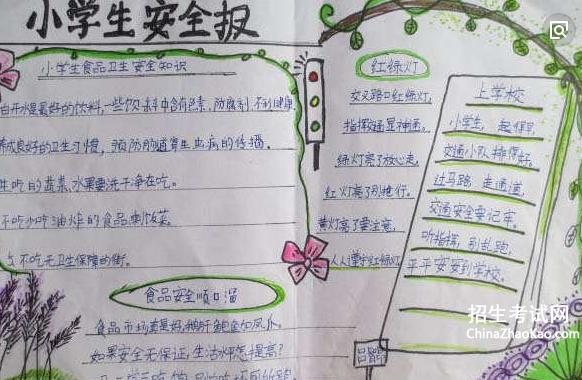 小学生安全报
小学生食品卫生安全知识
白开水是最好的饮料,一些饮料中含有色素、防腐剂 不利健康
养成良好的卫生习惯,预防肠道寄生虫病的传播.
生吃的蔬菜、水果要洗干净在吃。
不吃少吃油炸的食品
不吃无卫生保障的街。
食品安全顺口溜
食品市场
如果安全无保证,生活水怎提高?
红绿灯
交叉路口红绿灯,
指挥交通显神通。
绿灯亮了放心走,
红灯亮了别抢行。
黄灯亮了要注意,
人人遵守红绿灯
上学校
小学生,起得早,
交通小队排得好。
过马路,走通道,
交通安全要记牢。
听指挥,别乱跑,
平平安安到学校。
招生考试网
ChinaZhaoKao.com